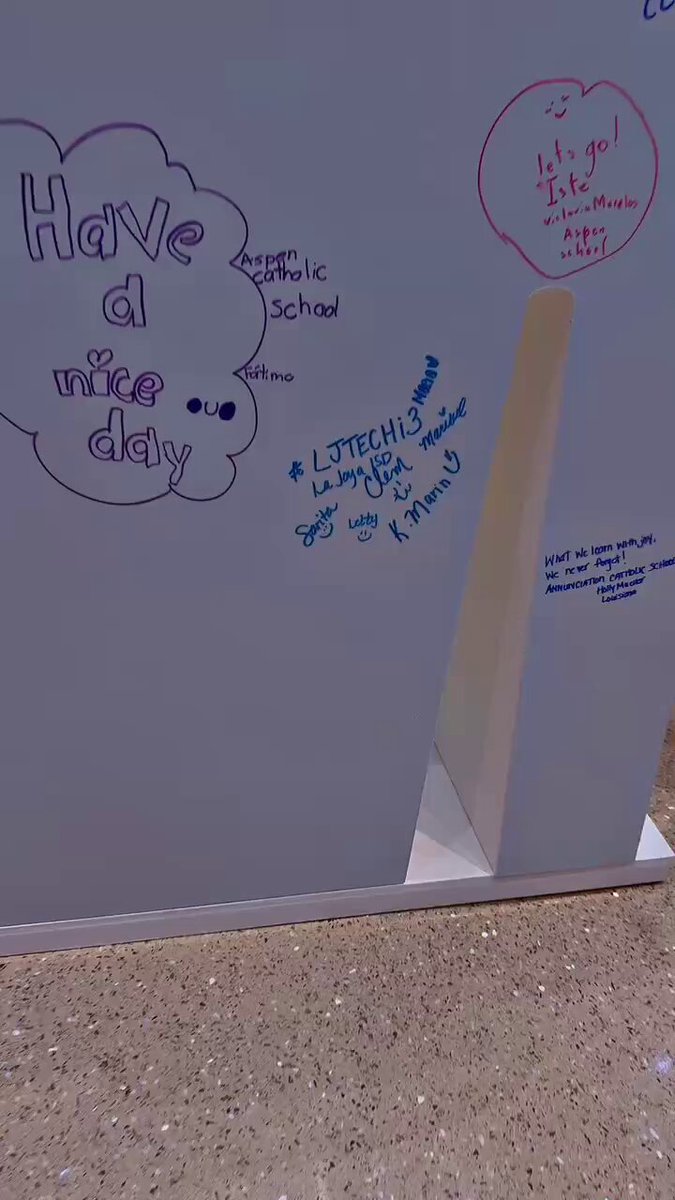 Have
a
nice
day
Aspen
catholic
School
Fátima
let's go!
Iste
Victoria Morelos
Aspen
school
#LJTECHi3
La Joya ISD
Clem
Maria
Marisol
Sarita
Letty
K. Marin
What we learn with joy,
We never forget!
ANNUNCIATION CATHOLIC SCHOOL
Holly
Louisiana